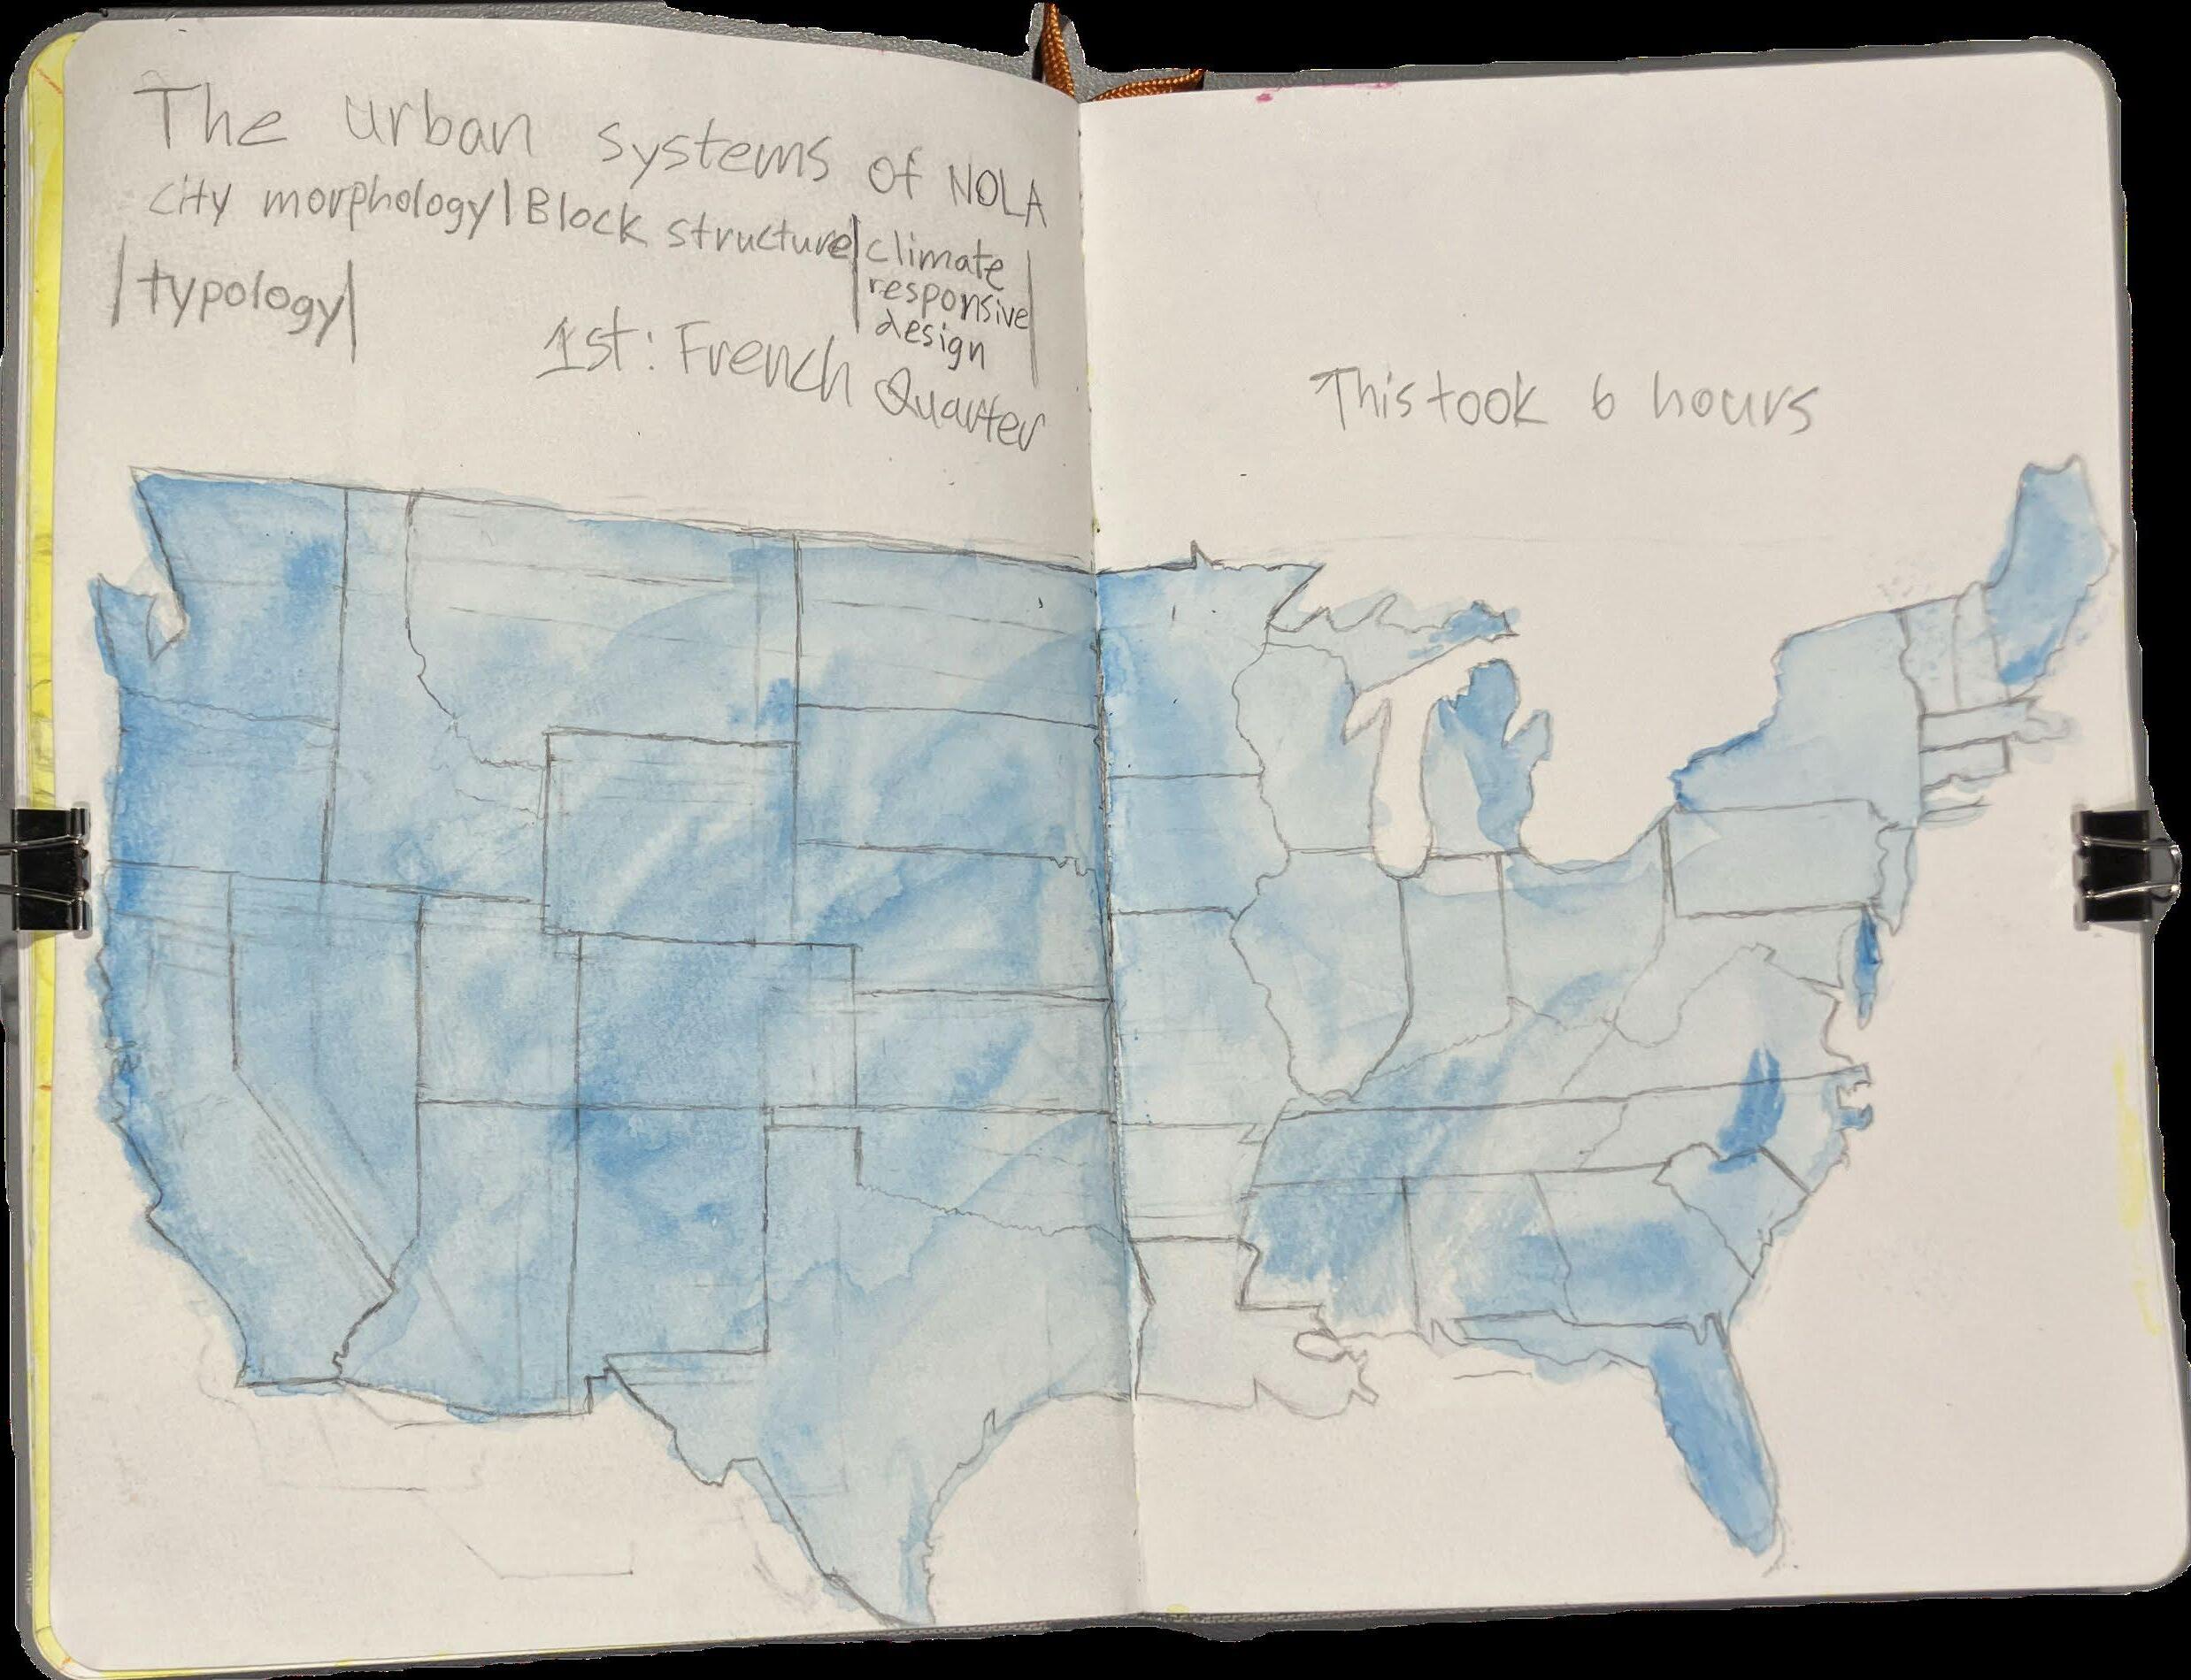 The urban systems of NOLA
city morphology | Block structure | climate responsive design |
| typology |
1st: French Quarter
This took 6 hours